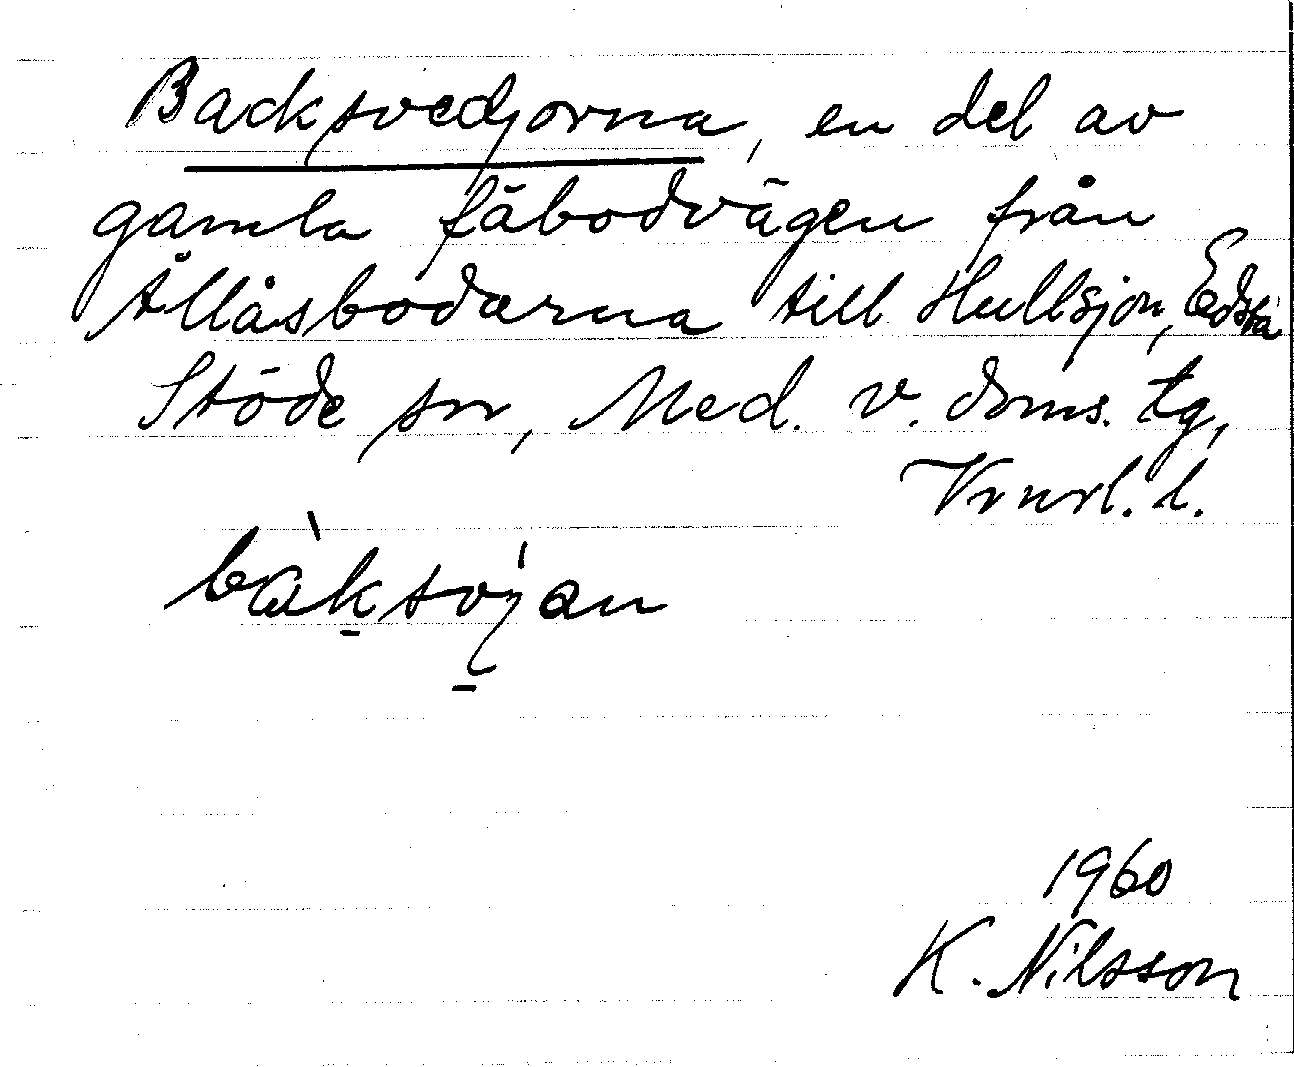 Backsvedjorna, en del av
gamla fäbodvägen från
Ållåsbodarna till Hullsjön, Edsta
Stöde sn, Med. v. doms. tg,
Vrnrl. l.
bàksv́jan
1960
K. Nilsson